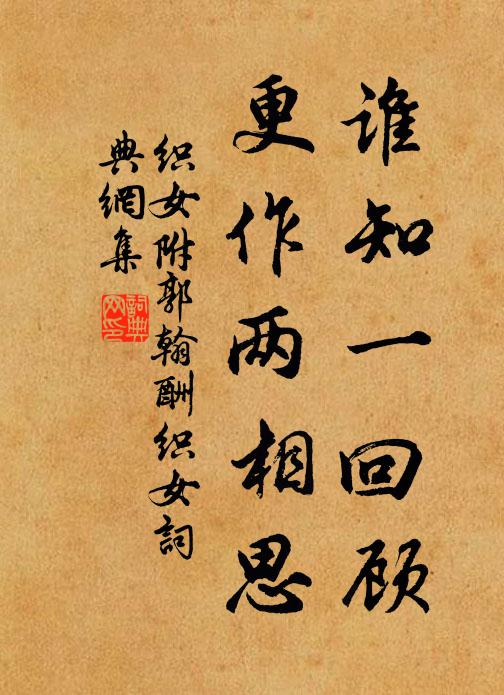 谁知一回顾
更作两相思
织女附郭翰酬织女词
典網集
詞典網印